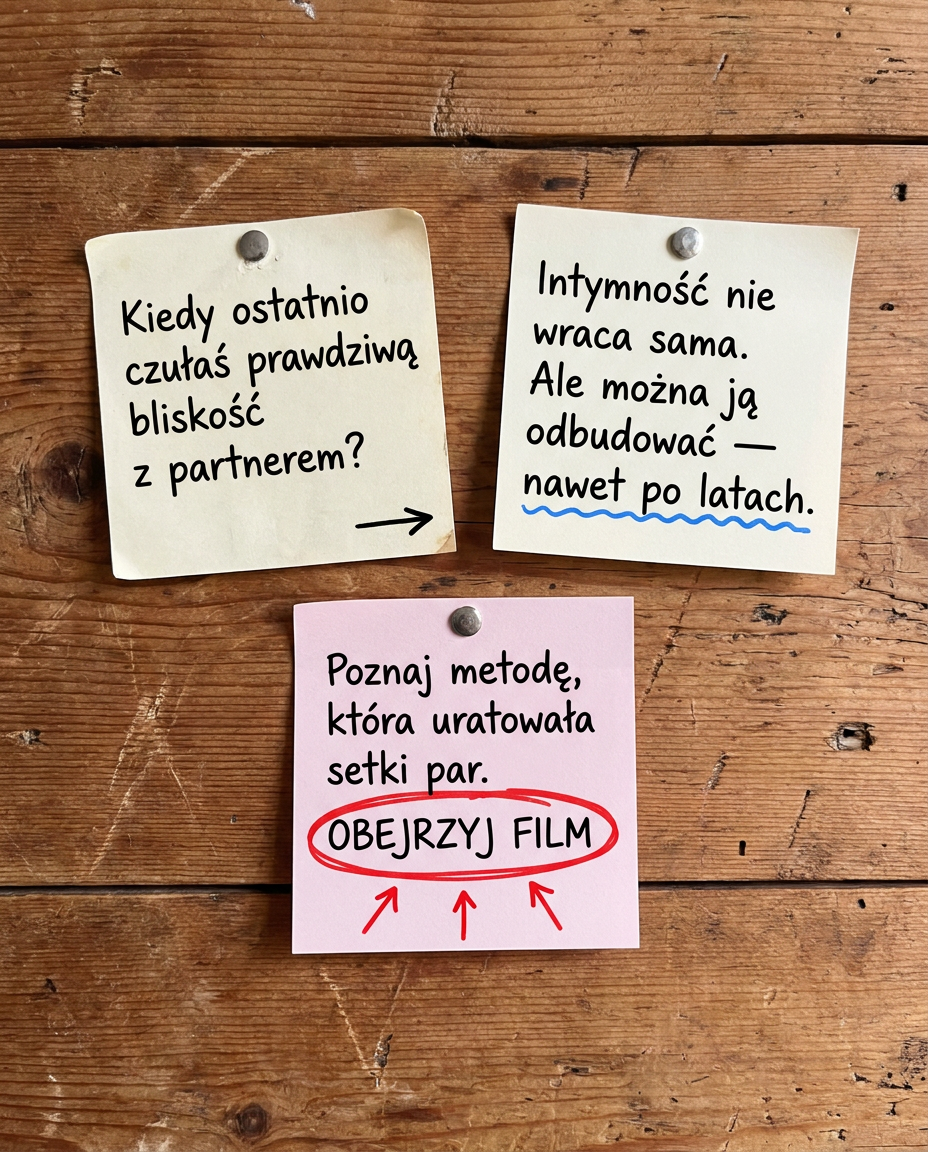 Kiedy ostatnio
czułaś prawdziwą
bliskość
z partnerem?
Intymność nie
wraca sama.
Ale można ją
odbudować —
nawet po latach.
Poznaj metodę,
która uratowała
setki par.
OBEJRZYJ FILM